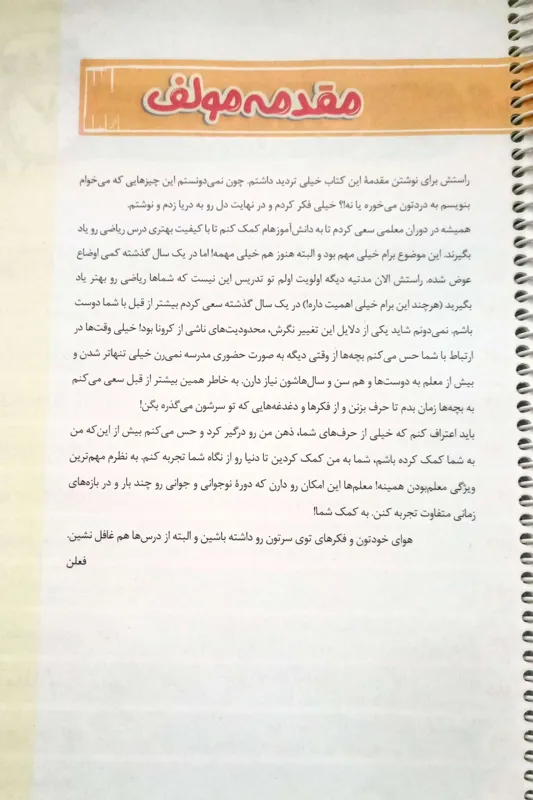 مقدمه مولف
راستش برای نوشتن مقدمهٔ این کتاب خیلی تردید داشتم. چون نمی‌دونستم این چیزهایی که می‌خوام
بنویسم به دردتون می‌خوره یا نه!؟ خیلی فکر کردم و در نهایت دل رو به دریا زدم و نوشتم.
همیشه در دوران معلمی سعی کردم تا به دانش‌آموزهام کمک کنم تا با کیفیت بهتری درس ریاضی رو یاد
بگیرند. این موضوع برام خیلی مهم بود و البته هنوز هم خیلی مهمه! اما در یک سال گذشته کمی اوضاع
عوض شده. راستش الان مدتیه دیگه اولویت اولم تو تدریس این نیست که شماها ریاضی رو بهتر یاد
بگیرید (هرچند این برام خیلی اهمیت داره!) در یک سال گذشته سعی کردم بیشتر از قبل با شما دوست
باشم. نمی‌دونم شاید یکی از دلایل این تغییر نگرش، محدودیت‌های ناشی از کرونا بود! خیلی وقت‌ها در
ارتباط با شما حس می‌کنم بچه‌ها از وقتی دیگه به صورت حضوری مدرسه نمی‌رن خیلی تنهاتر شدن و
بیش از معلم به دوست‌ها و هم سن و سال‌هاشون نیاز دارن. به خاطر همین بیشتر از قبل سعی می‌کنم
به بچه‌ها زمان بدم تا حرف بزنن و از فکرها و دغدغه‌هایی که تو سرشون می‌گذره بگن!
باید اعتراف کنم که خیلی از حرف‌های شما، ذهن من رو درگیر کرد و حس می‌کنم بیش از این‌که من
به شما کمک کرده باشم، شما به من کمک کردین تا دنیا رو از نگاه شما تجربه کنم. به نظرم مهم‌ترین
ویژگی معلم‌بودن همینه! معلم‌ها این امکان رو دارن که دورهٔ نوجوانی و جوانی رو چند بار و در بازه‌های
زمانی متفاوت تجربه کنن. به کمک شما!
هوای خودتون و فکرهای توی سرتون رو داشته باشین و البته از درس‌ها هم غافل نشین.
فعلن